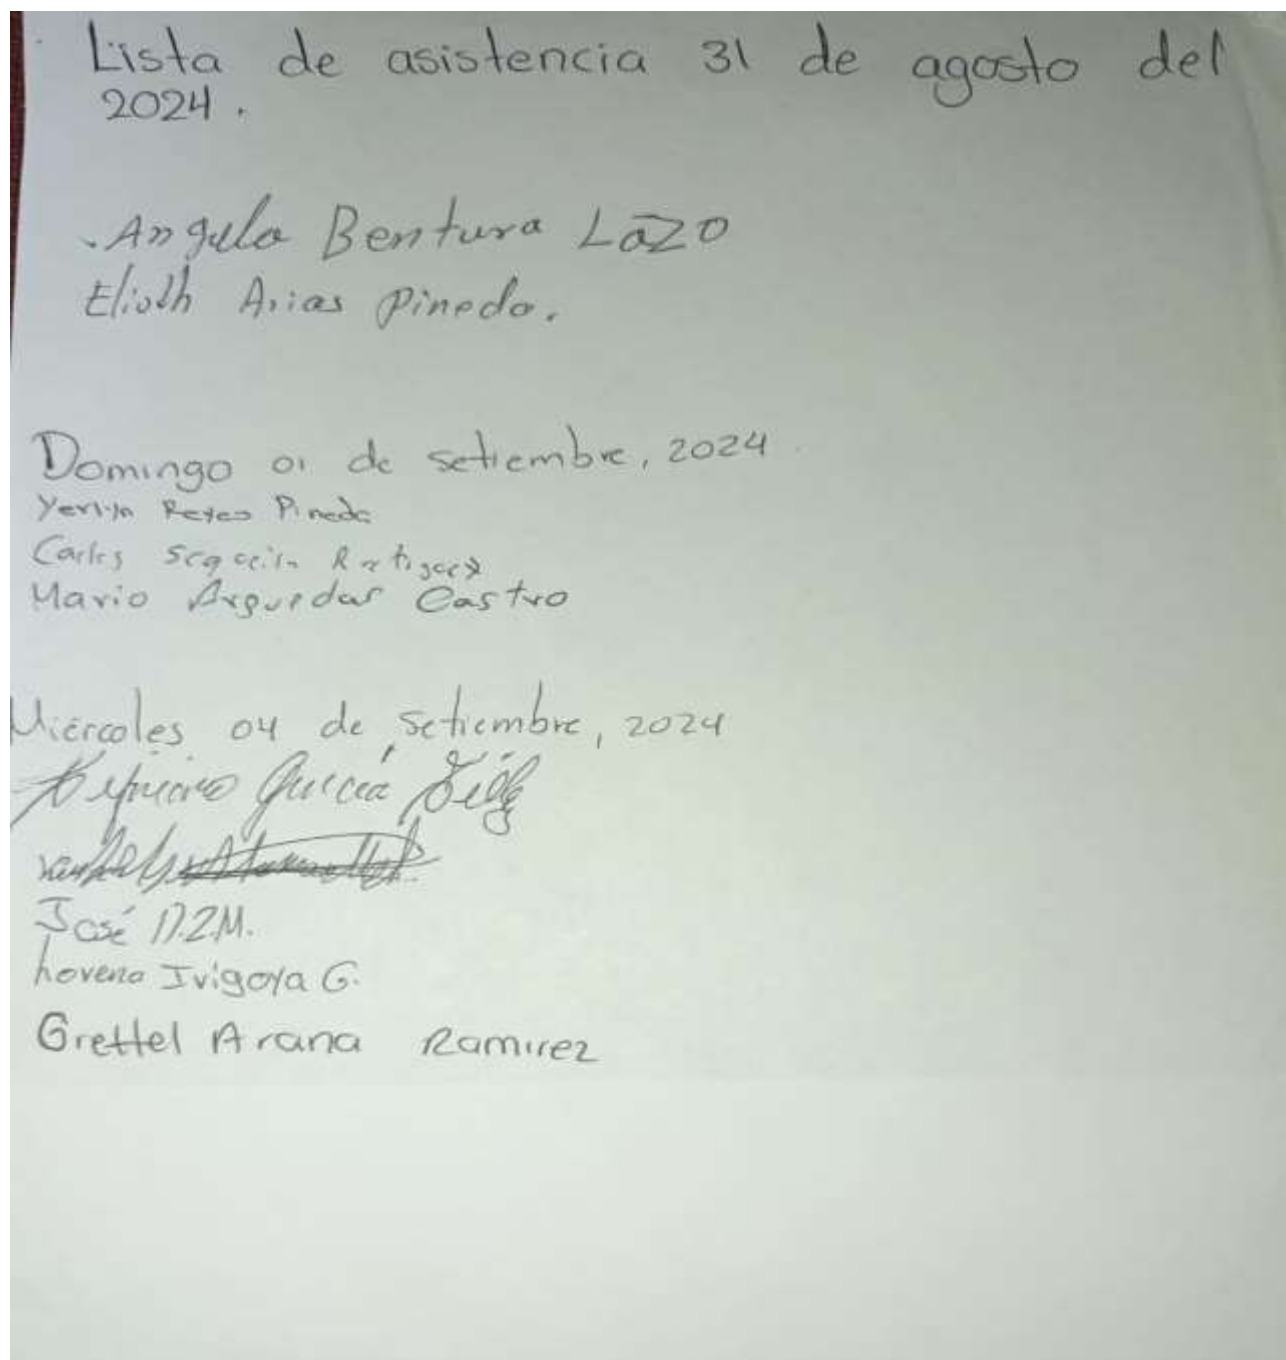 Lista de asistencia 31 de agosto del
2024.
Angela Bentura Lazo
Elioth Arias Pineda.
Domingo 01 de setiembre, 2024
Yerlyn Reyes Pineda
Carlos
Mario Arguedas Castro
Miercoles 04 de setiembre, 2024
García
José D.Z.M.
Lorena Irigoya G.
Grettel Arana Ramirez